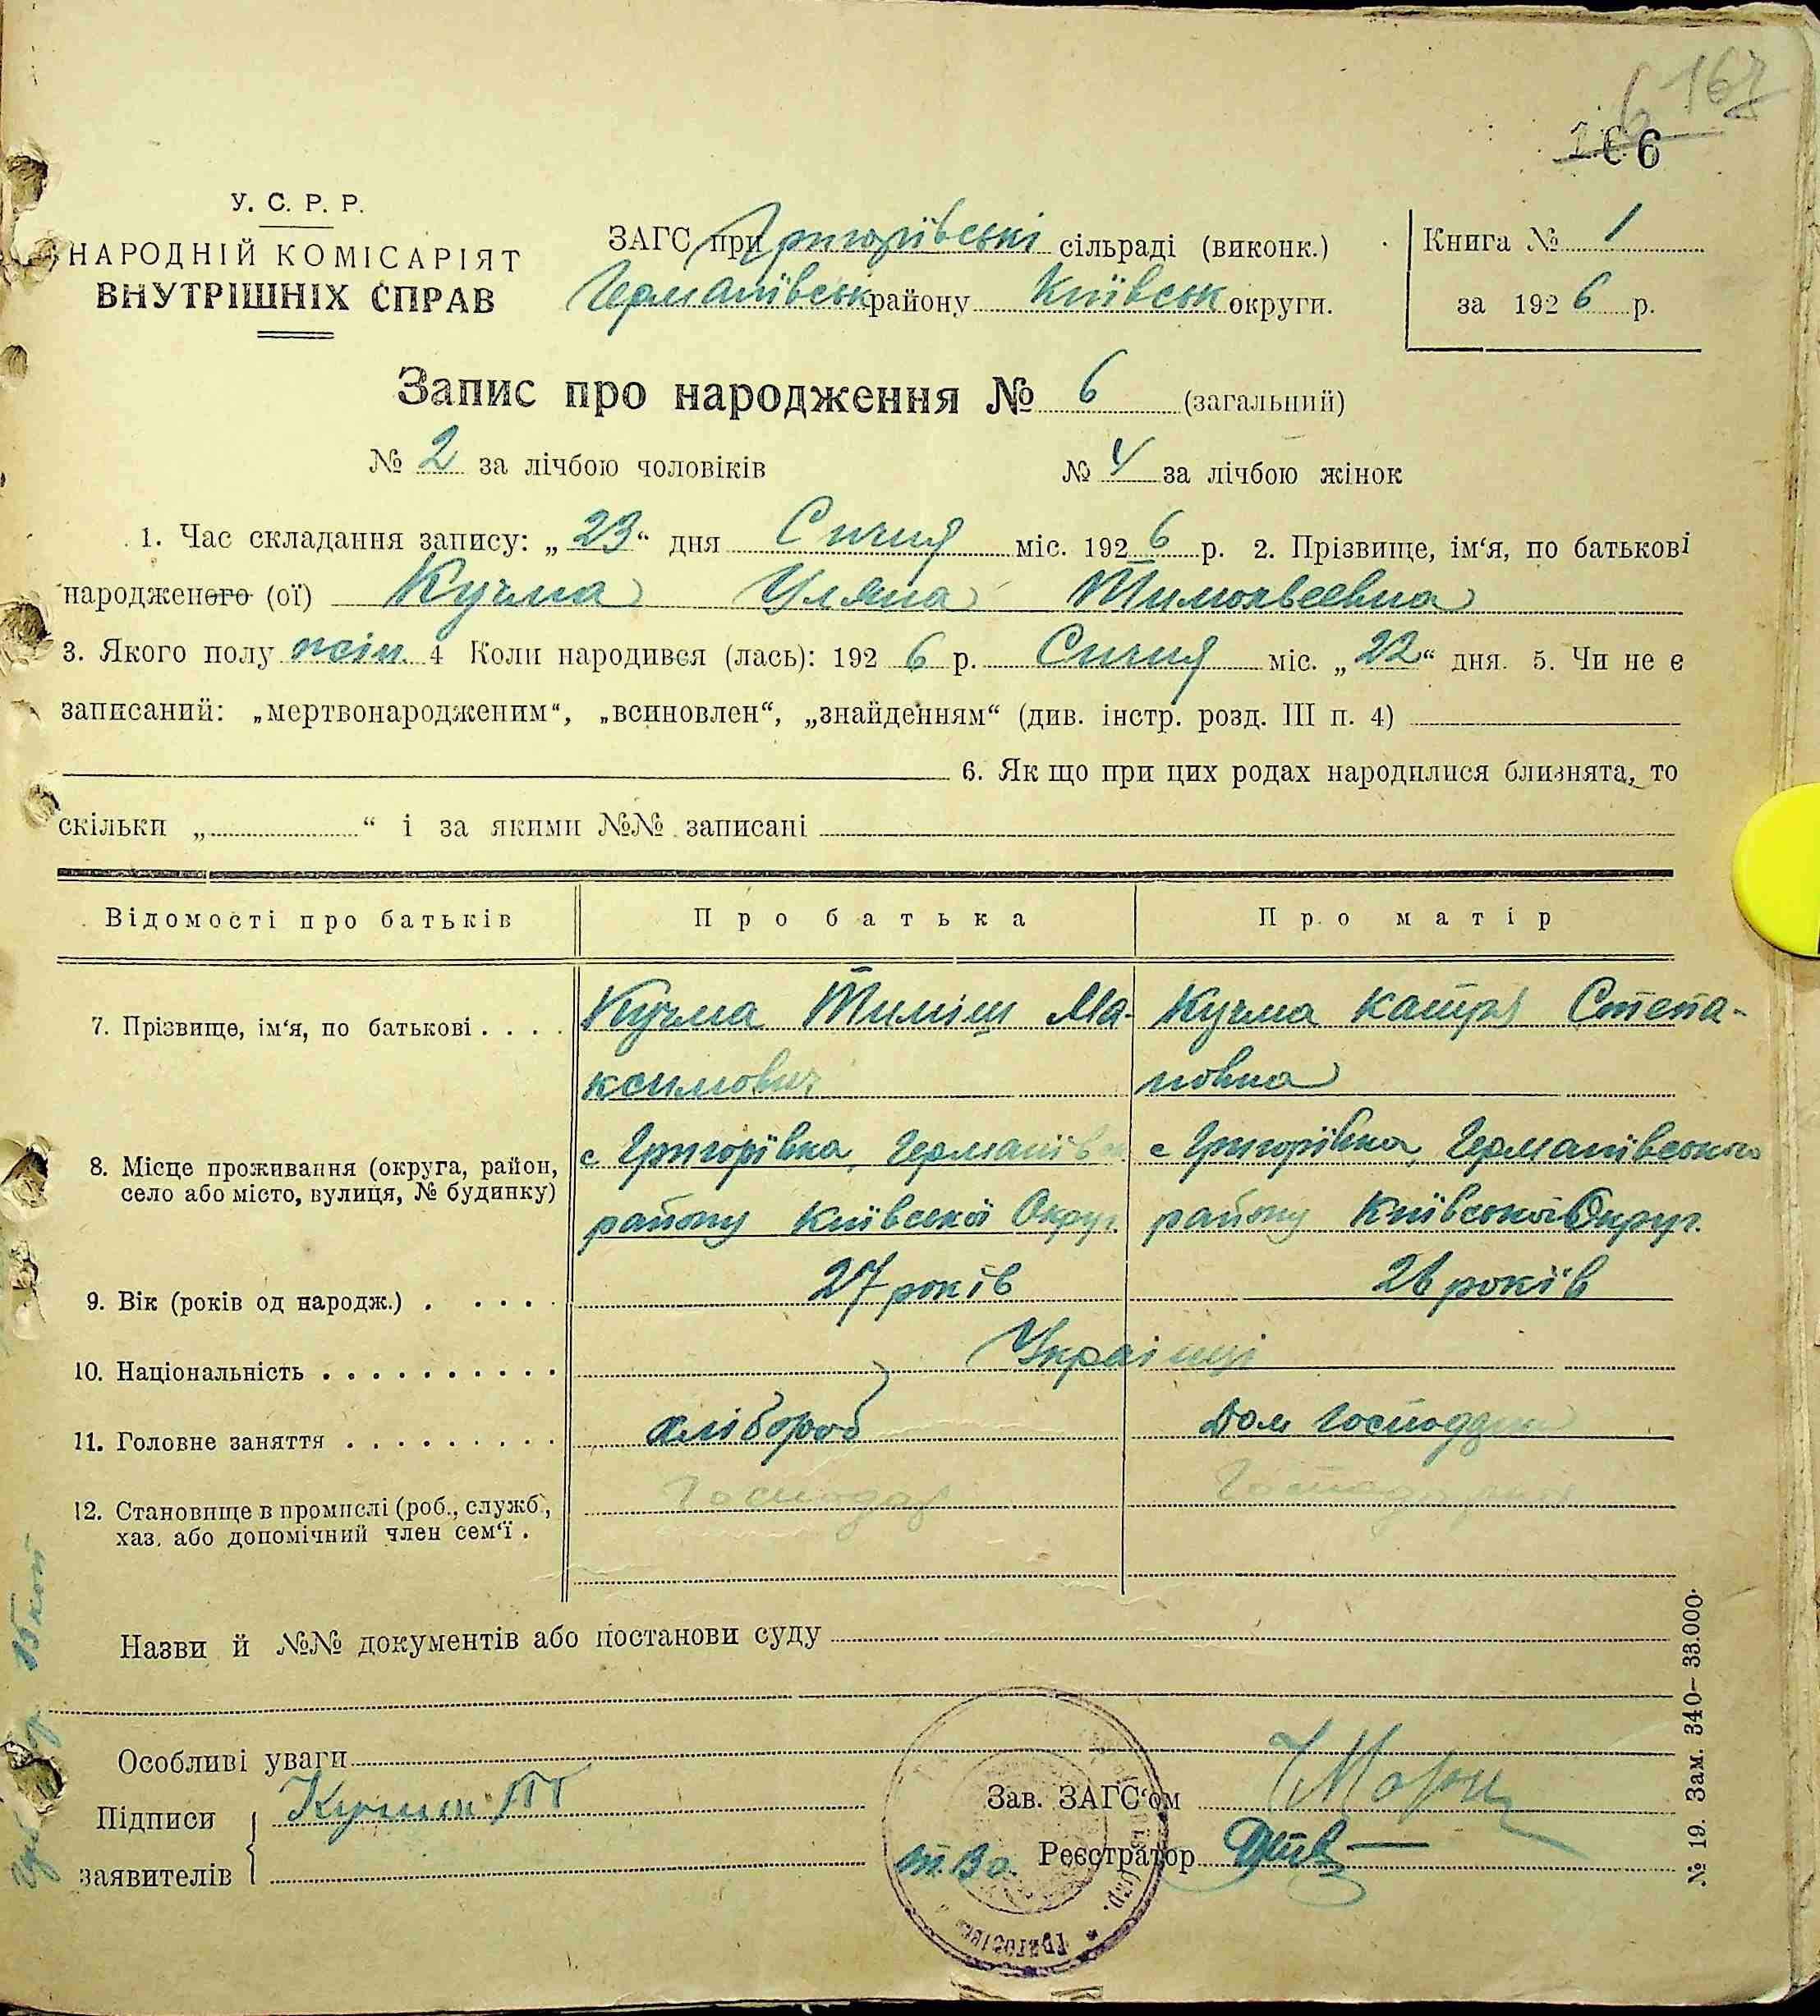 167
6
166
У. С. Р. Р.
НАРОДНІЙ КОМІСАРІЯТ
ВНУТРІШНІХ СПРАВ
ЗАГС при Григорівські сільраді (виконк.)
Германівськ району Київськ округи.
Книга № 1
за 1926 р.
Запис про народження № 6 (загальний)
№ 2 за лічбою чоловіків № 4 за лічбою жінок
1. Час складання запису: „23“ дня Січня міс. 1926 р. 2. Прізвище, ім‘я, по батькові
народженого (ої) Кучма Уляна Тимохвеевна
3. Якого полу жін. 4 Коли народився (лась): 1926 р. Січня міс. „22“ дня. 5. Чи не є
записаний: „мертвонародженим“, „всиновлен“, „знайденням“ (див. інстр. розд. III п. 4)
6. Як що при цих родах народилися близнята, то
скільки „ “ і за якими №№ записані
Відомості про батьків Про батька Про матір
7. Прізвище, ім‘я, по батькові . . . . Кучма Тиміш Ма- Кучма Катря Степа-
ксимович новна
8. Місце проживання (округа, район, с Григорівка, Германівськ с Григорівка, Германівського
село або місто, вулиця, № будинку) району Київської Округ. району Київської Округ.
9. Вік (років од народж.) . . . . . 27 років 26 років
10. Національність . . . . . . . . . . Українці
11. Головне заняття . . . . . . . . . хлібороб Дом господарка
12. Становище в промислі (роб., служб., Господар
хаз. або допомічний член сем‘ї .
Назви й №№ документів або постанови суду
Особливі уваги
Підписи Кучма
заявителів
Зав. ЗАГС‘ом
т в о. Реєстратор
№ 19. Зам. 340–33.000.
15 коп